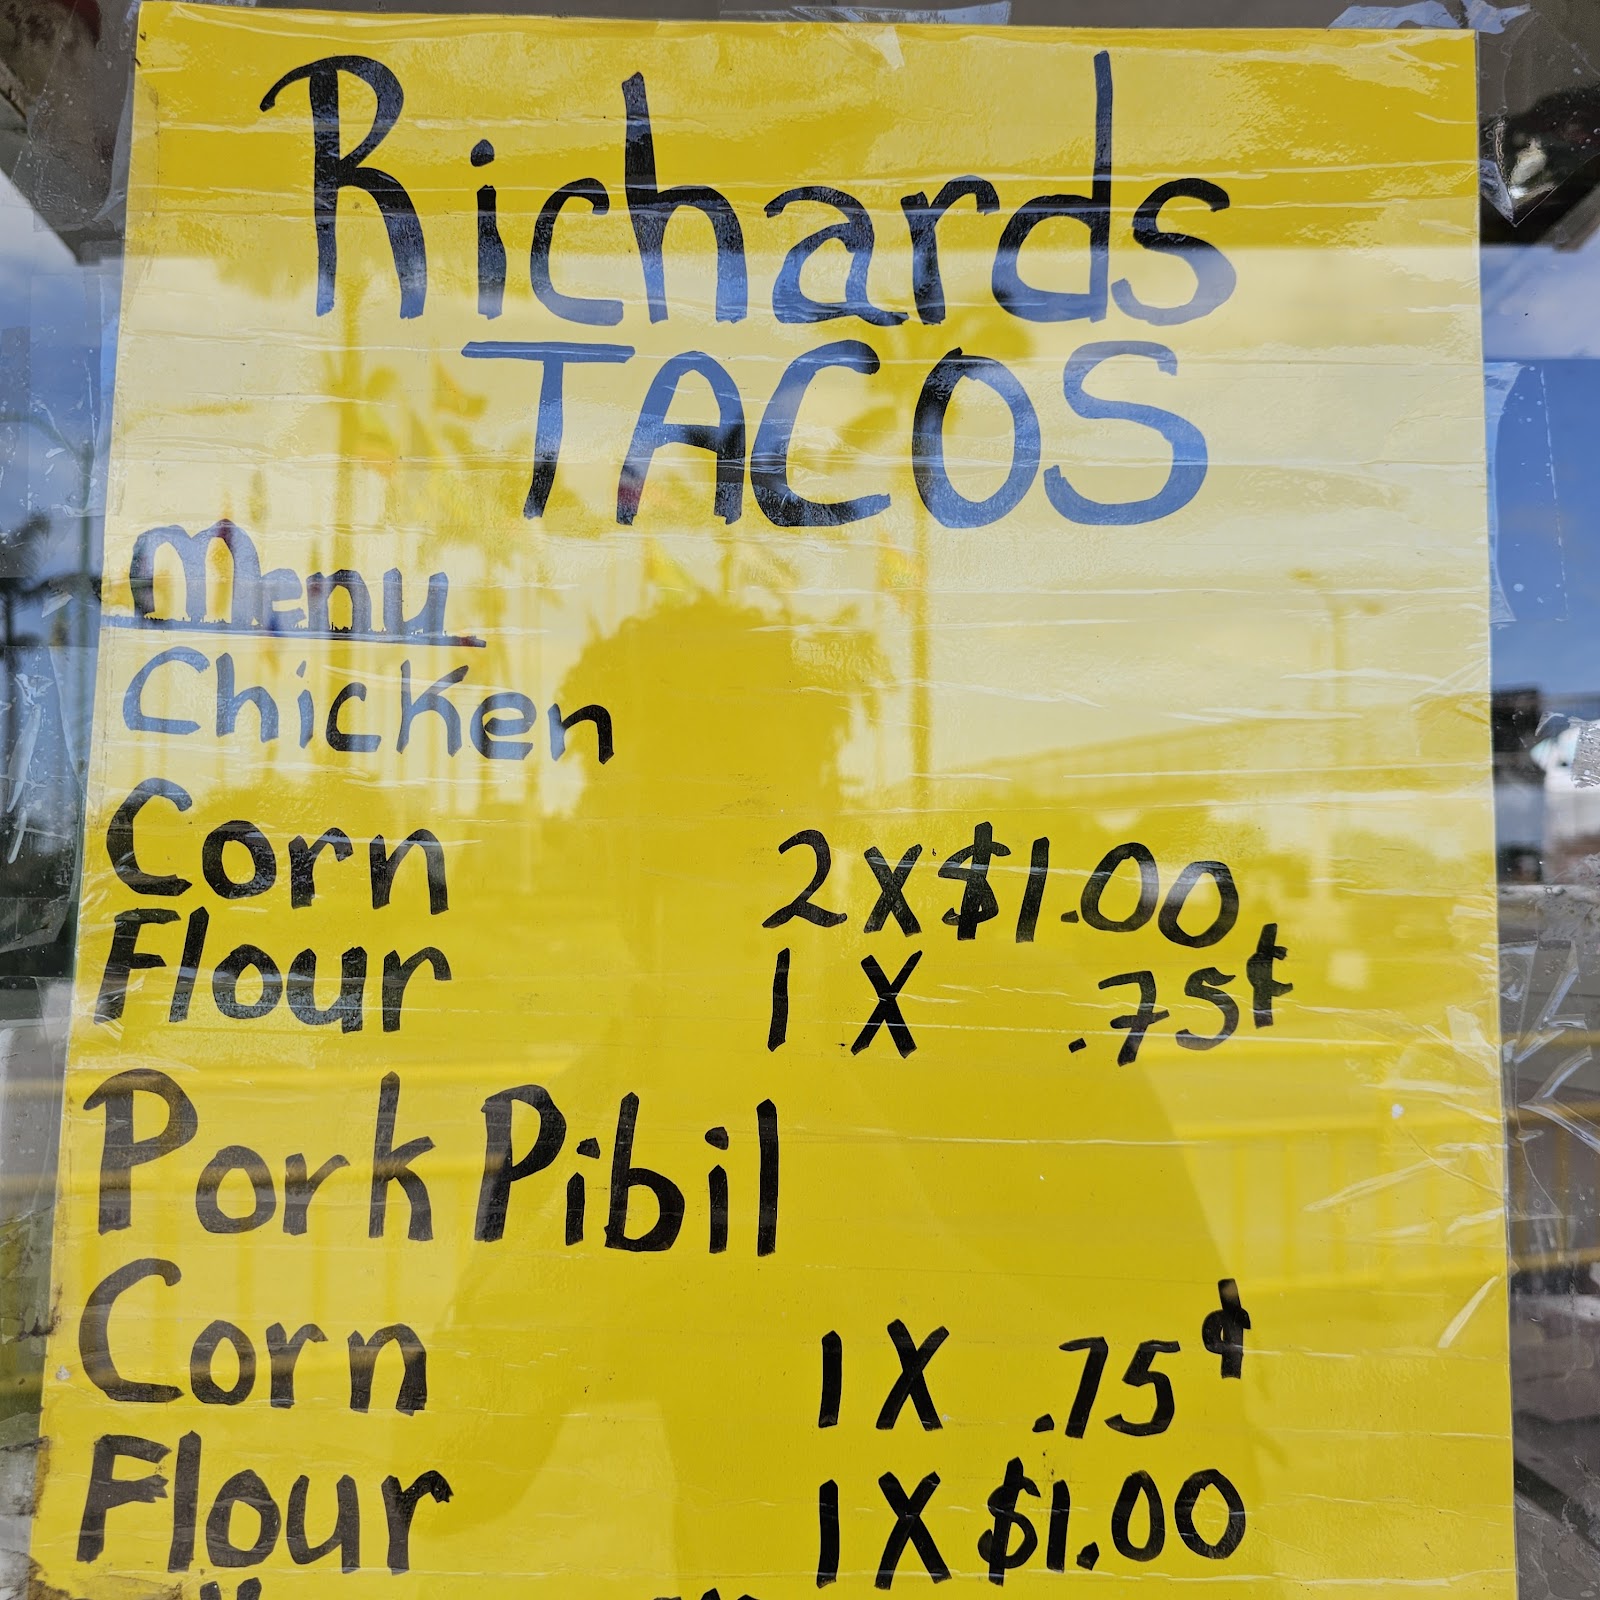 Richards
TACOS
Menu
Chicken
Corn 2 X $1.00
Flour 1 X .75¢
Pork Pibil
Corn 1 X .75¢
Flour 1 X $1.00